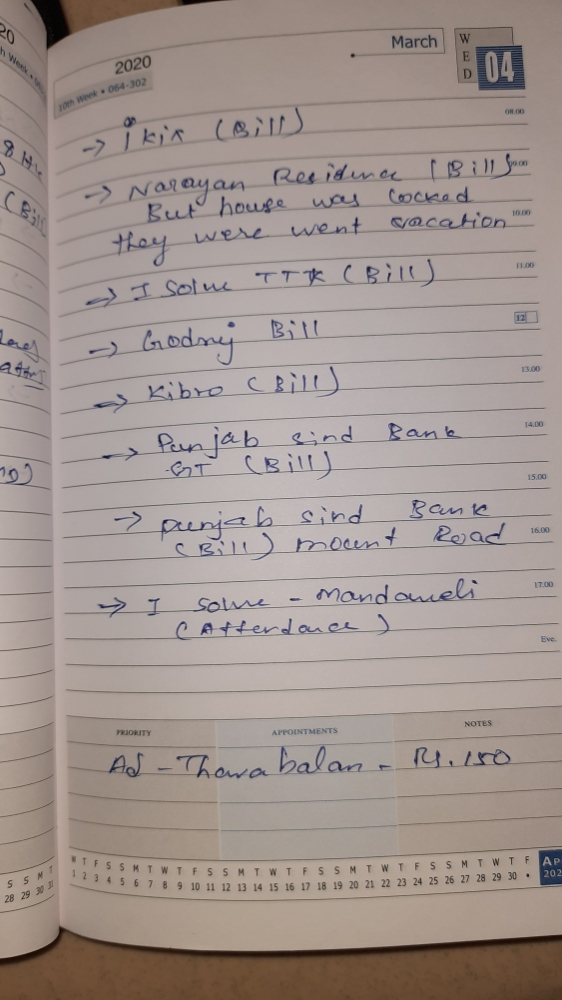 20
th Week •
8 Hr
(Bill
2020
10th Week • 064-302
March
WED
04
08.00
→ ikix (Bill)
09.00
→ Narayan Residence (Bill)
But house was locked
10.00
they were went vacation
11.00
→ I Solve TTK (Bill)
12
→ Godrej Bill
13.00
→ Kibro (Bill)
14.00
→ Punjab sind Bank
GT (Bill)
15.00
→ punjab sind Bank
16.00
(Bill) mount Road
17.00
→ I solve - Mandaveli
(Attendance)
Eve.
PRIORITY APPOINTMENTS NOTES
Ad - Thavabalan - Rs. 150
W T F S S M T W T F S S M T W T F S S M T W T F S S M T W T F
1 2 3 4 5 6 7 8 9 10 11 12 13 14 15 16 17 18 19 20 21 22 23 24 25 26 27 28 29 30 •
AP
202
S S M T
28 29 30 31